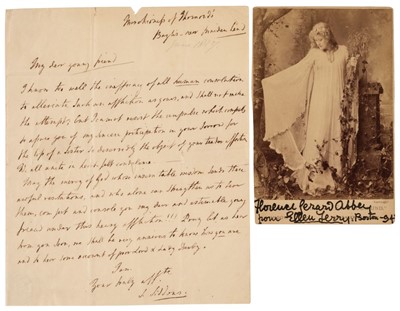 Marchioness of Thomond's
Bayles near
My dear young friend
I know too well the emptiness of all human consolation
to alleviate such an affliction as yours, and shall not make
the attempt; but I must assert the
to assure you of my sincere participation in your sorrow for
the loss of a Sister so deservedly the object of your tender affection
We all unite in heart-felt condolence.
May the mercy of God whose inscrutable wisdom sends these
awful visitations, and who alone can strengthen us to bear
them, comfort and console you my dear and estimable young
friend under this heavy affliction!!! Pray let us hear
from you soon, we shall be very anxious to know how you are
and to have some account of poor Lord & Lady
I am
Yours truly affte
S. Siddons
Florence Gerard Abbey
from Ellen Terry. Boston